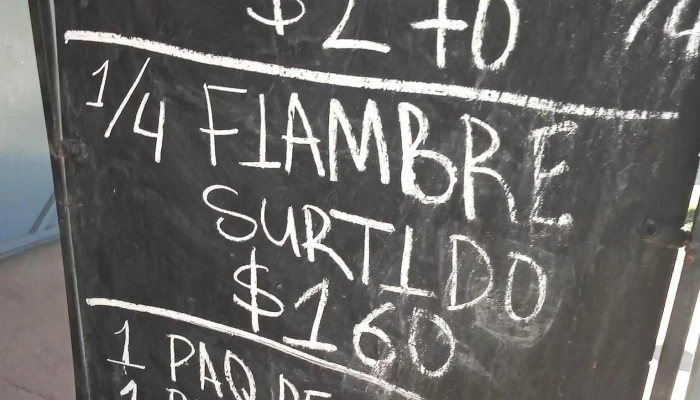 $270
1/4 FIAMBRE
SURTIDO
$160
1 PAQ DE